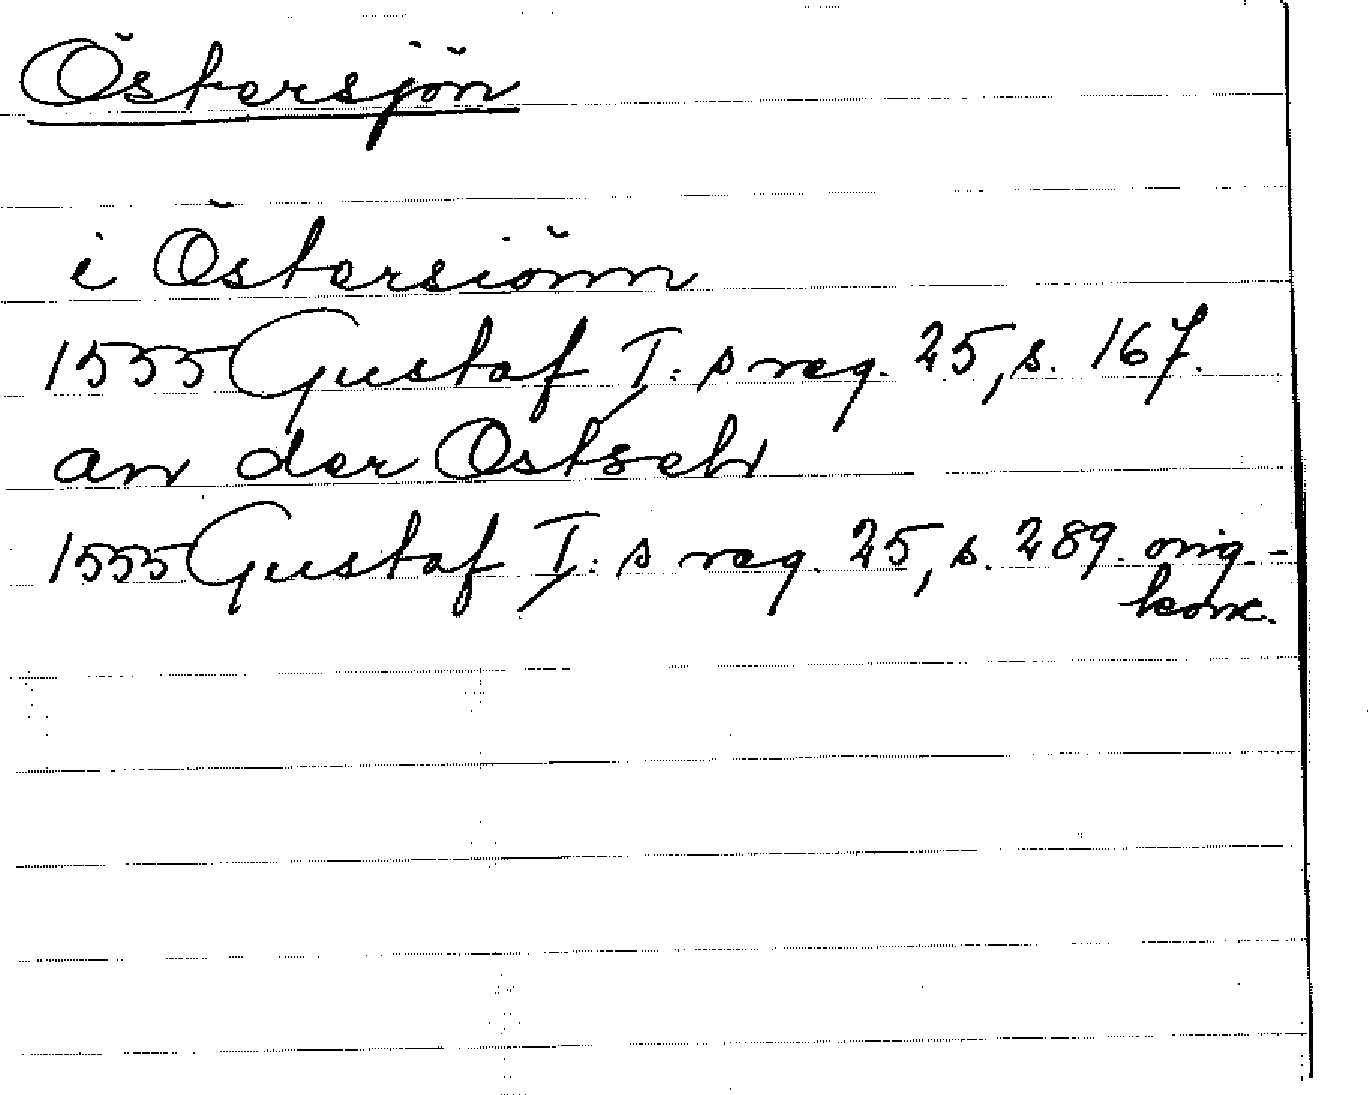 Östersjön
i Östersiönn
1555 Gustaf I:s reg. 25, s. 167.
an der Ostseh
1555 Gustaf I:s reg. 25, s. 289. orig.-
konc.